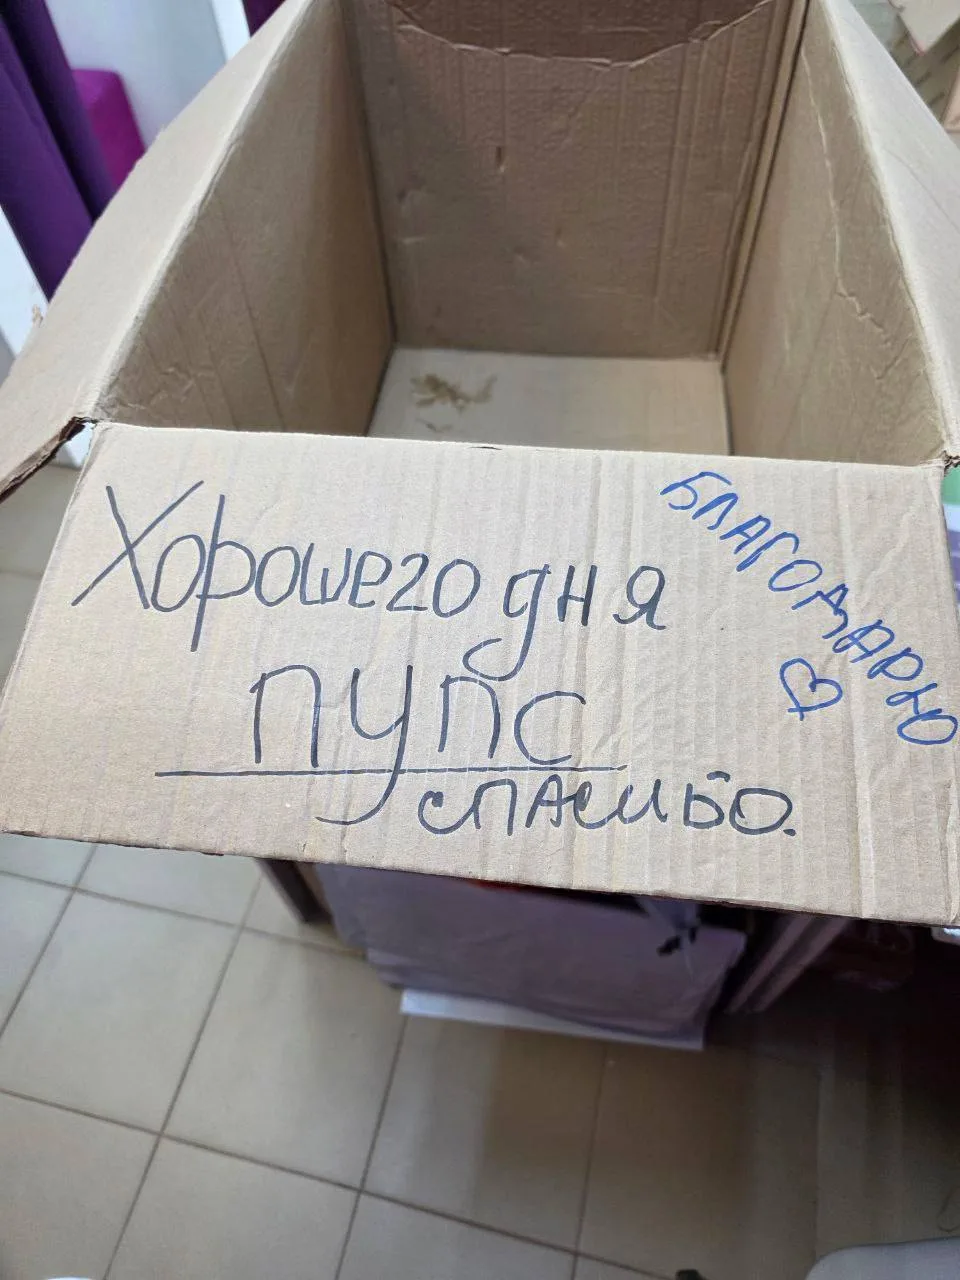 Хорошего дня
пупс
спасибо.
БЛАГОДАРЮ